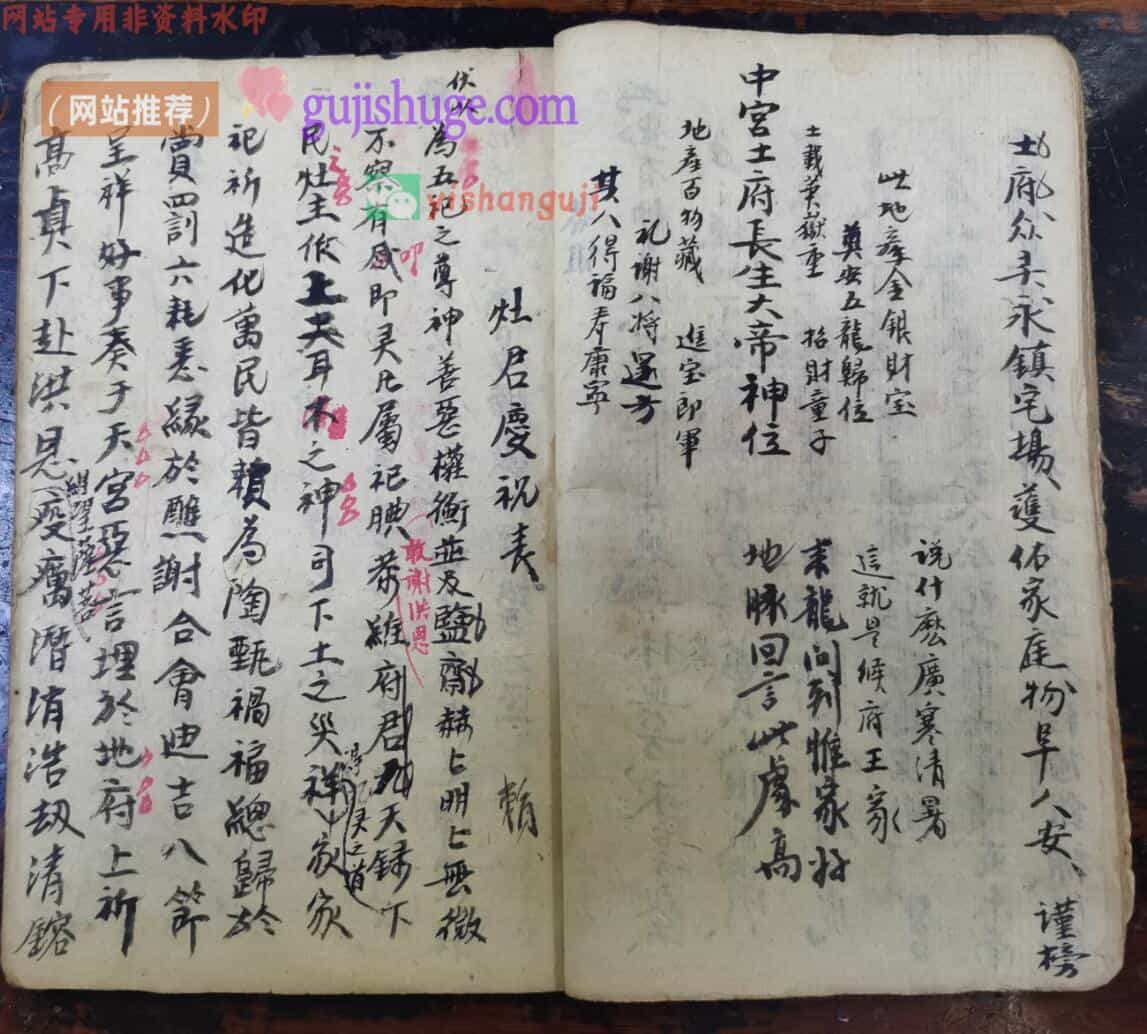 网站专用非资料水印
（网站推荐）
gujishuge.com
yishanguji
土府众圣永镇宅場護佑家庭物阜人安、謹榜
此地產金銀財宝
奠安五龍歸位
土載英嶽重 招財童子
中宮土府長生大帝神位
地產百物藏 進宝郎軍
礼謝八将還方
其人得福寿康寧
说什麽廣寒清暑
這就是候府王家
来龍问到惟家好
地脉回言此處高
灶君慶祝表
賴
伏以
為五祀之尊神善惡權衡並及鹽齋赫匕明匕無微
不察有感即灵凡属祀典恭維府君九天録下
叩
敢謝洪恩
民灶主作上天耳目之神司下土之災祥家家
得
灵之道
祀祈造化萬民皆賴為陶甄禍福總歸於
賞四訓六耗悉緣於醮謝合會迪吉八節
呈祥好事奏于天宮惡言埋於地府上祈
高真下赴洪恩瘦癘潛消浩劫清鎔